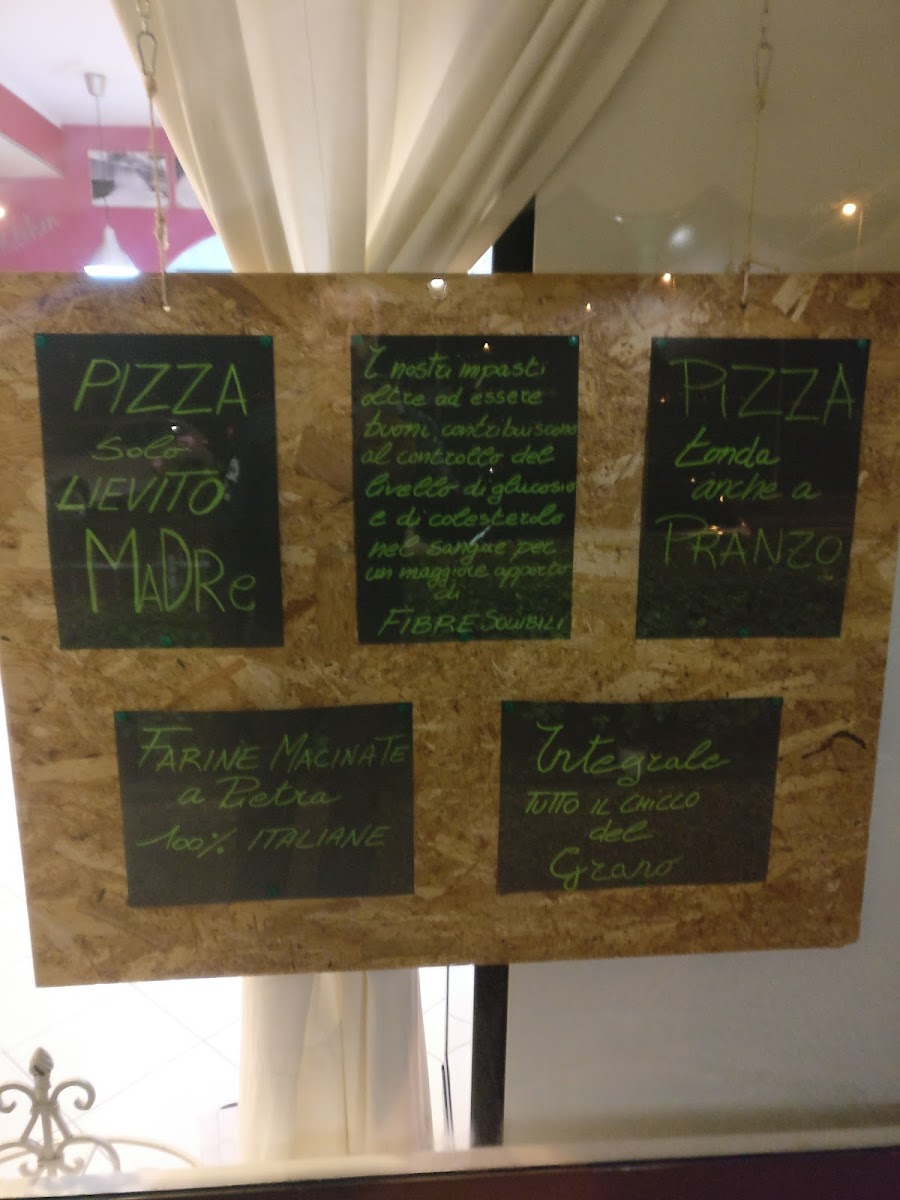 PIZZA
solo
LIEVITO
MADRe
I nostri impasti
oltre ad essere
buoni contribuiscono
al controllo del
livello di glucosio
e di colesterolo
nel sangue per
un maggiore apporto
di
FIBRE SOLUBILI
PIZZA
tonda
anche a
PRANZO
FARINE MACINATE
a Pietra
100% ITALIANE
Integrale
TUTTO IL CHICCO
del
Grano